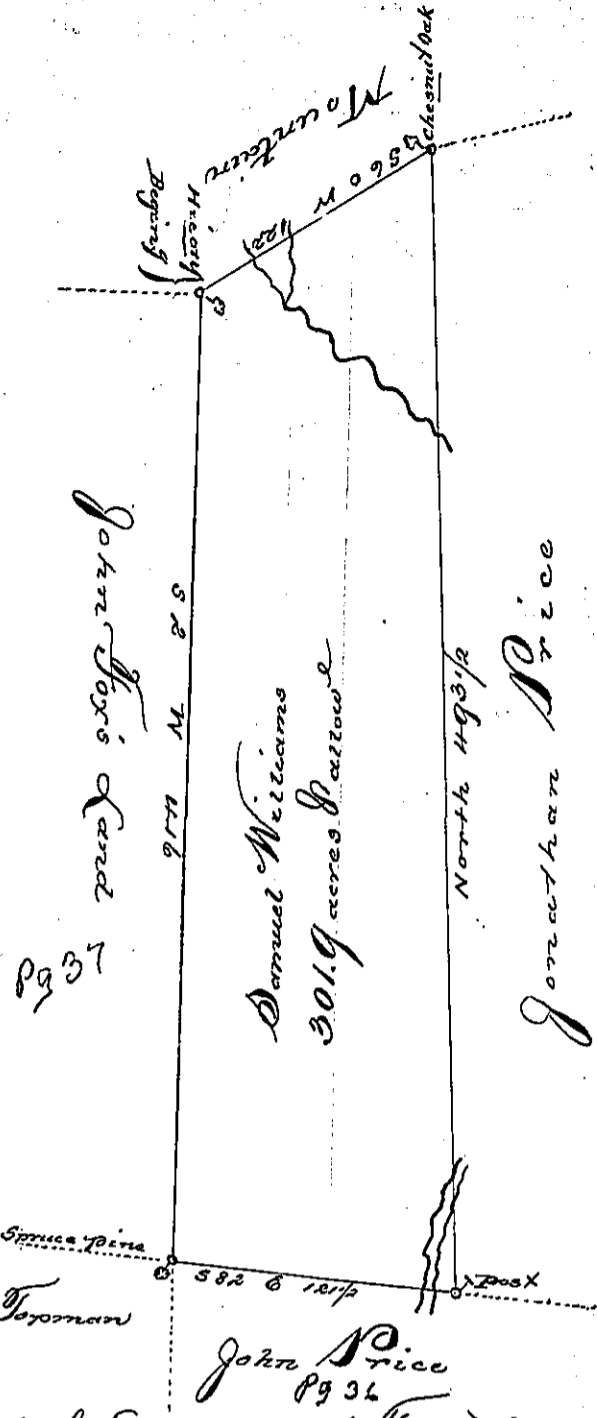 Chesnut Oak
Mountain
S 60 W
122
Hicory
Begining
John Fox's Land
S 2 W 416
Samuel Williams
301.9 acres & allow
North 493 1/2
Jonathan Price
Pg 37
Spruce Pine
S 82 E 121 1/2
Post
Topman
John Price